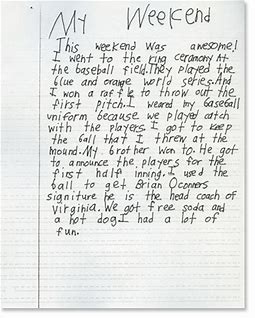 My Weekend
This weekend was awesome!
I went to the ring ceramony at
the baseball field.They played the
blue and orange world series.And
I won a raffle to throw out the
first pitch.I weared my baseball
uniform because we played catch
with the players.I got to keep
the ball that I threw at the
mound.My brother won to. He got
to announce the players for the
first half inning.I used the
ball to get Brian Oconners
signiture he is the head coach of
Virginia. We got free soda and
a hot dog.I had a lot of
fun.